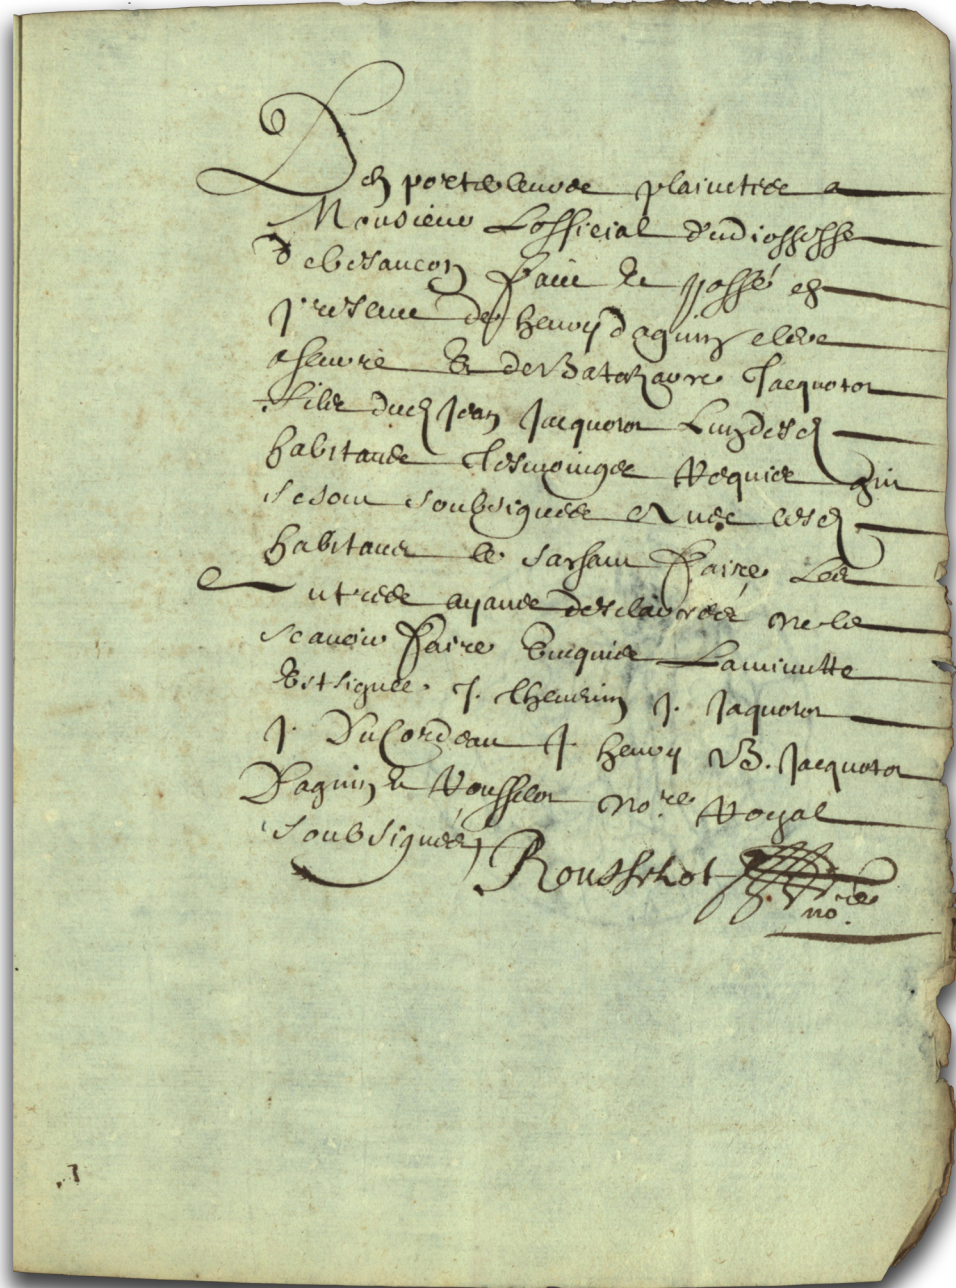 D'en porter leurs plainctes a
Monsieur Lofficial du diossesse
de besancon faict et passé en
presence de henry daguin
et de Baltazare Jacquotot
fils dud Jean Jacquotot
habitans tesmoings Requis qui
se sont soubsignés avec lesd
habitans le sachant faire Les
autres ayans desclairés ne le
scavoir faire Enequis La minutte
Est signée J. thevenin J. Jaquotot
J. Ducordeau J. henry B. Jacquotot
Daguin et Rousselot no.re Royal
soubsignés
Rousselot
no.re